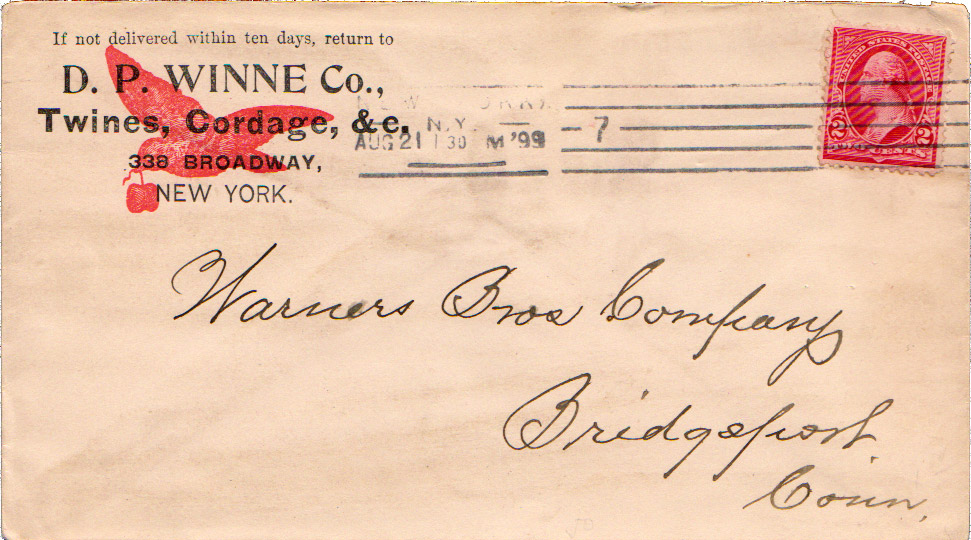 If not delivered within ten days, return to
D. P. WINNE Co.,
Twines, Cordage, &c.
338 BROADWAY,
NEW YORK.
NEW YORK
N.Y.
AUG 21 1 30 M '99
7
UNITED STATES POSTAGE
2 CENTS 2
Warners Bros Company
Bridgeport
Conn.